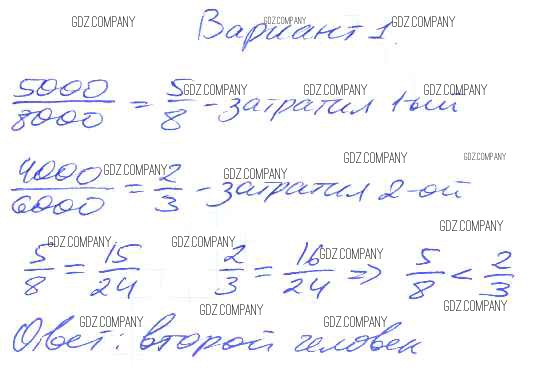 GDZ.COMPANY GDZ.COMPANY GDZ.COMPANY
Вариант 1.
GDZ.COMPANY GDZ.COMPANY GDZ.COMPANY
5000/8000 = 5/8 - затратил 1-ый
GDZ.COMPANY GDZ.COMPANY
GDZ.COMPANY GDZ.COMPANY
4000/6000 = 2/3 - затратил 2-ой
GDZ.COMPANY
GDZ.COMPANY GDZ.COMPANY GDZ.COMPANY
5/8 = 15/24 2/3 = 16/24 => 5/8 < 2/3
GDZ.COMPANY GDZ.COMPANY
GDZ.COMPANY GDZ.COMPANY
Ответ: второй человек